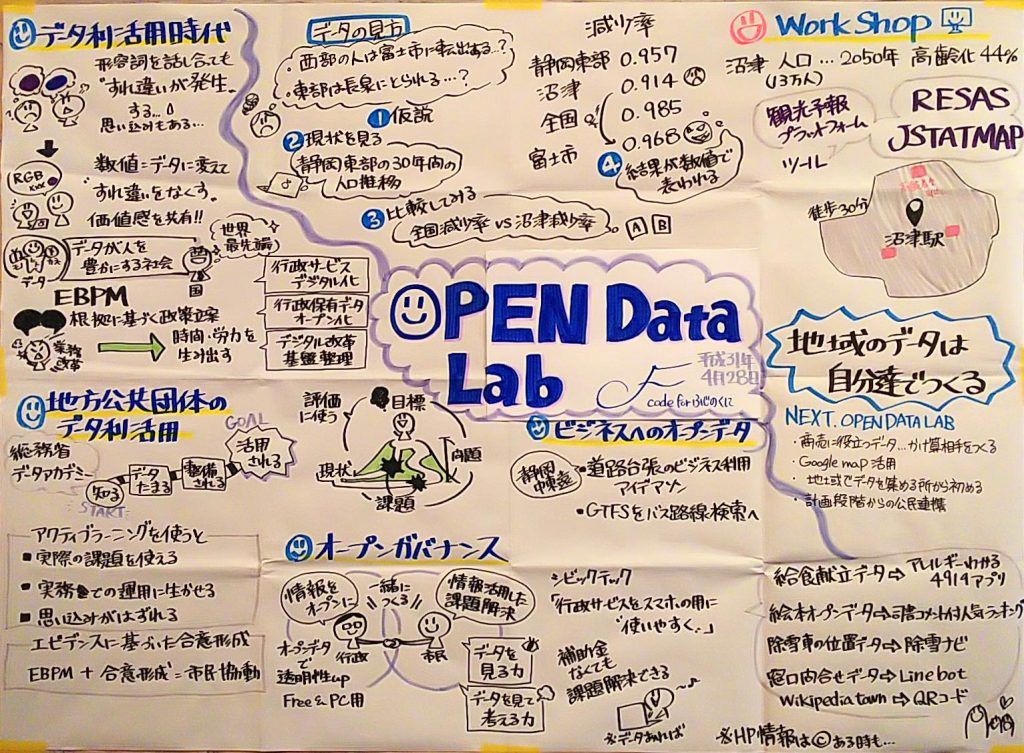 データ利活用時代
形容詞を話し合っても
"すれ違いが発生"
する…
思い込みもある…
RGB
xxx
数値=データに変えて
"すれ違いをなくす。
価値感を共有!!
データ
データが人を
豊かにする社会
国
世界
最先端
行政サービス
デジタル化
行政保有データ
オープン化
デジタル改革
基盤整理
EBPM
根拠に基づく政策立案
業務
改革
時間・労力を
生み出す
データの見方
・西部の人は富士市に転出ある..?
・東部は長泉にとられる…?
①仮説
②現状を見る
静岡東部の30年間の
人口推移
③比較してみる
全国減少率 VS 沼津減少率
A B
減少率
静岡東部 0.957
沼津 0.914
全国 0.985
富士市 0.968
④結果が数値で
表われれる
Work Shop
沼津 人口…2050年 高齢化44%
(13万人)
観光予報
プラットフォーム
ツール
RESAS
JSTATMAP
徒歩30分
沼津駅
OPEN Data
Lab
平成31年
4月28日
code for ふじのくに
地域のデータは
自分達でつくる
NEXT. OPEN DATA LAB
・商売に役立つデータ…かけ算相手をつくる
・Google map 活用
・地域でデータを集める所から初める
・計画段階からの公民連携
地方公共団体の
データ利活用
総務省
データアカデミー
START
知る
データ
たまる
整備
される
活用
される
GOAL
アクティブラーニングを使うと
■実際の課題を使える
■実務での運用に生かせる
■思い込みがはずれる
エビデンスに基づいた合意形成
EBPM + 合意形成=市民協動
評価
に使う
目標
現状
問題
課題
ビジネスへのオープンデータ
静岡
中東遠
・道路台張のビジネス利用
アイデアソン
・GTFSをバス路線検索へ
オープンガバナンス
情報を
オープンに
一緒に
つくる
情報活用した
課題解決
行政
市民
オープンデータ
で
透明性up
Free & PC用
データを
見る力
データを見て
考える力
シビックテック
「行政サービスをスマホの用に
使いやすく。」
補助金
なくても
課題解決できる
※データあれば
給食献立データ⇨アレルギーわかる
4919アプリ
絵本オープンデータ⇨司書コメント付人気ランキング
除雪車の位置データ⇨除雪ナビ
窓口問合せデータ⇨Line bot
Wikipedia town⇨QRコード
※HP情報は©ある時も…